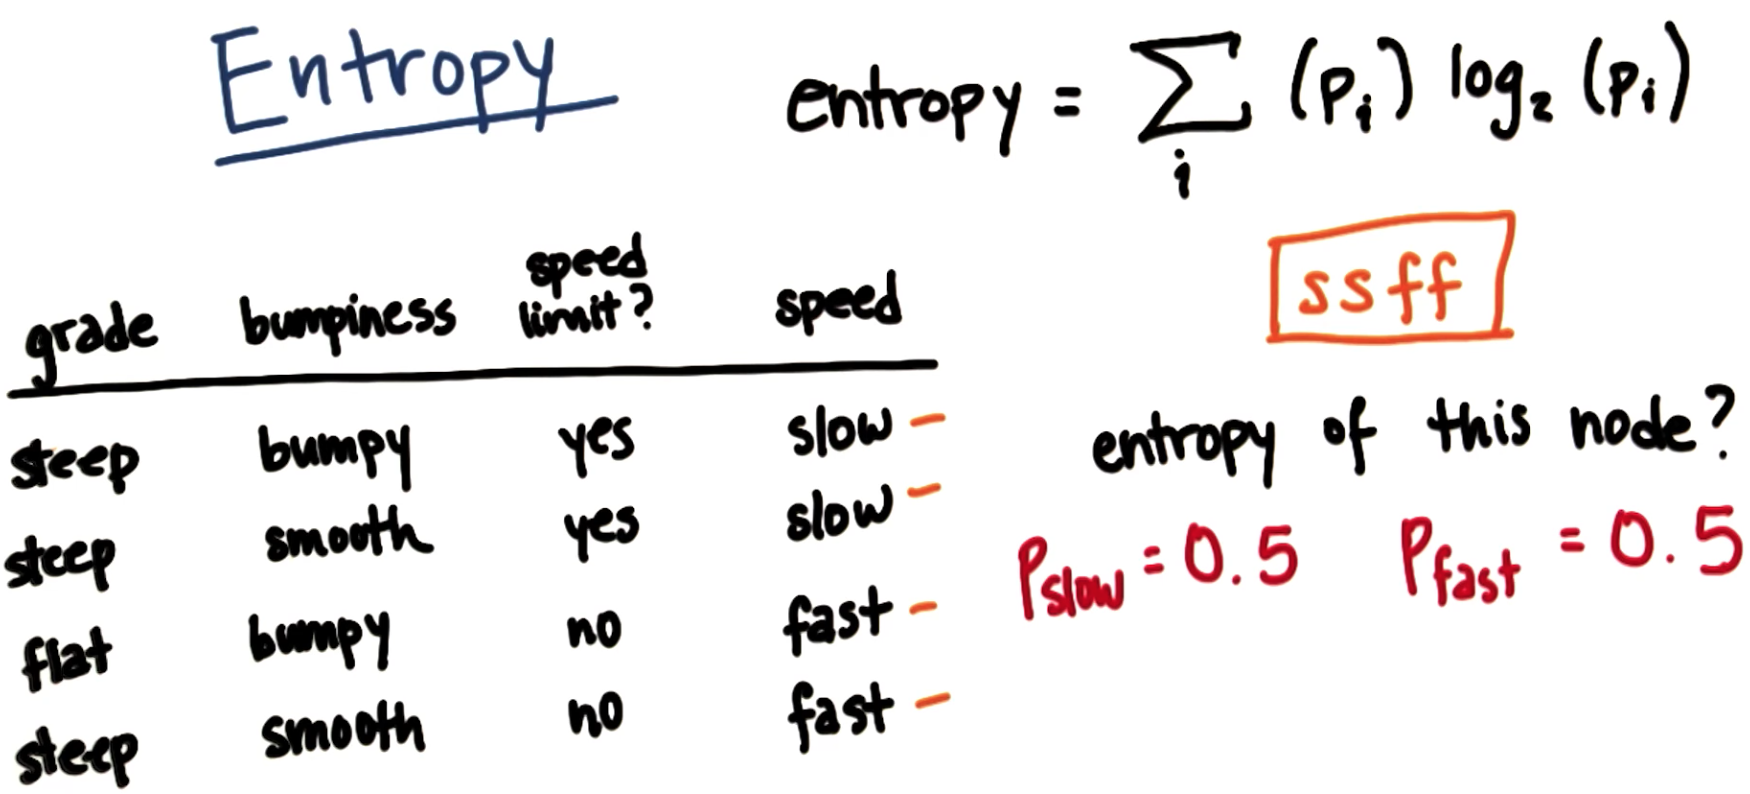 Entropy
entropy = Σ (pᵢ) log₂ (pᵢ)
i
ssff
grade bumpiness speed limit? speed
steep bumpy yes slow –
steep smooth yes slow –
flat bumpy no fast –
steep smooth no fast –
entropy of this node?
Pslow = 0.5 Pfast = 0.5